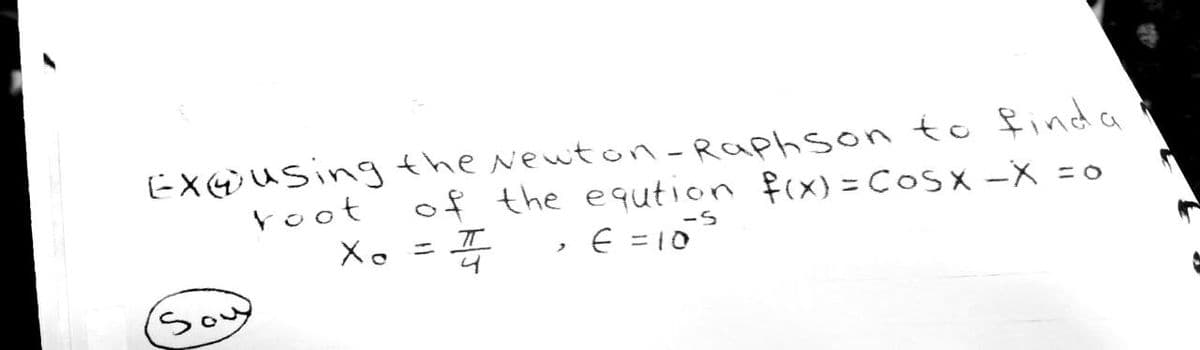 EX④ using the Newton-Raphson to find a
root of the eqution f(x) = cosx - x = 0
x₀ = π/4 , ϵ = 10⁻⁵